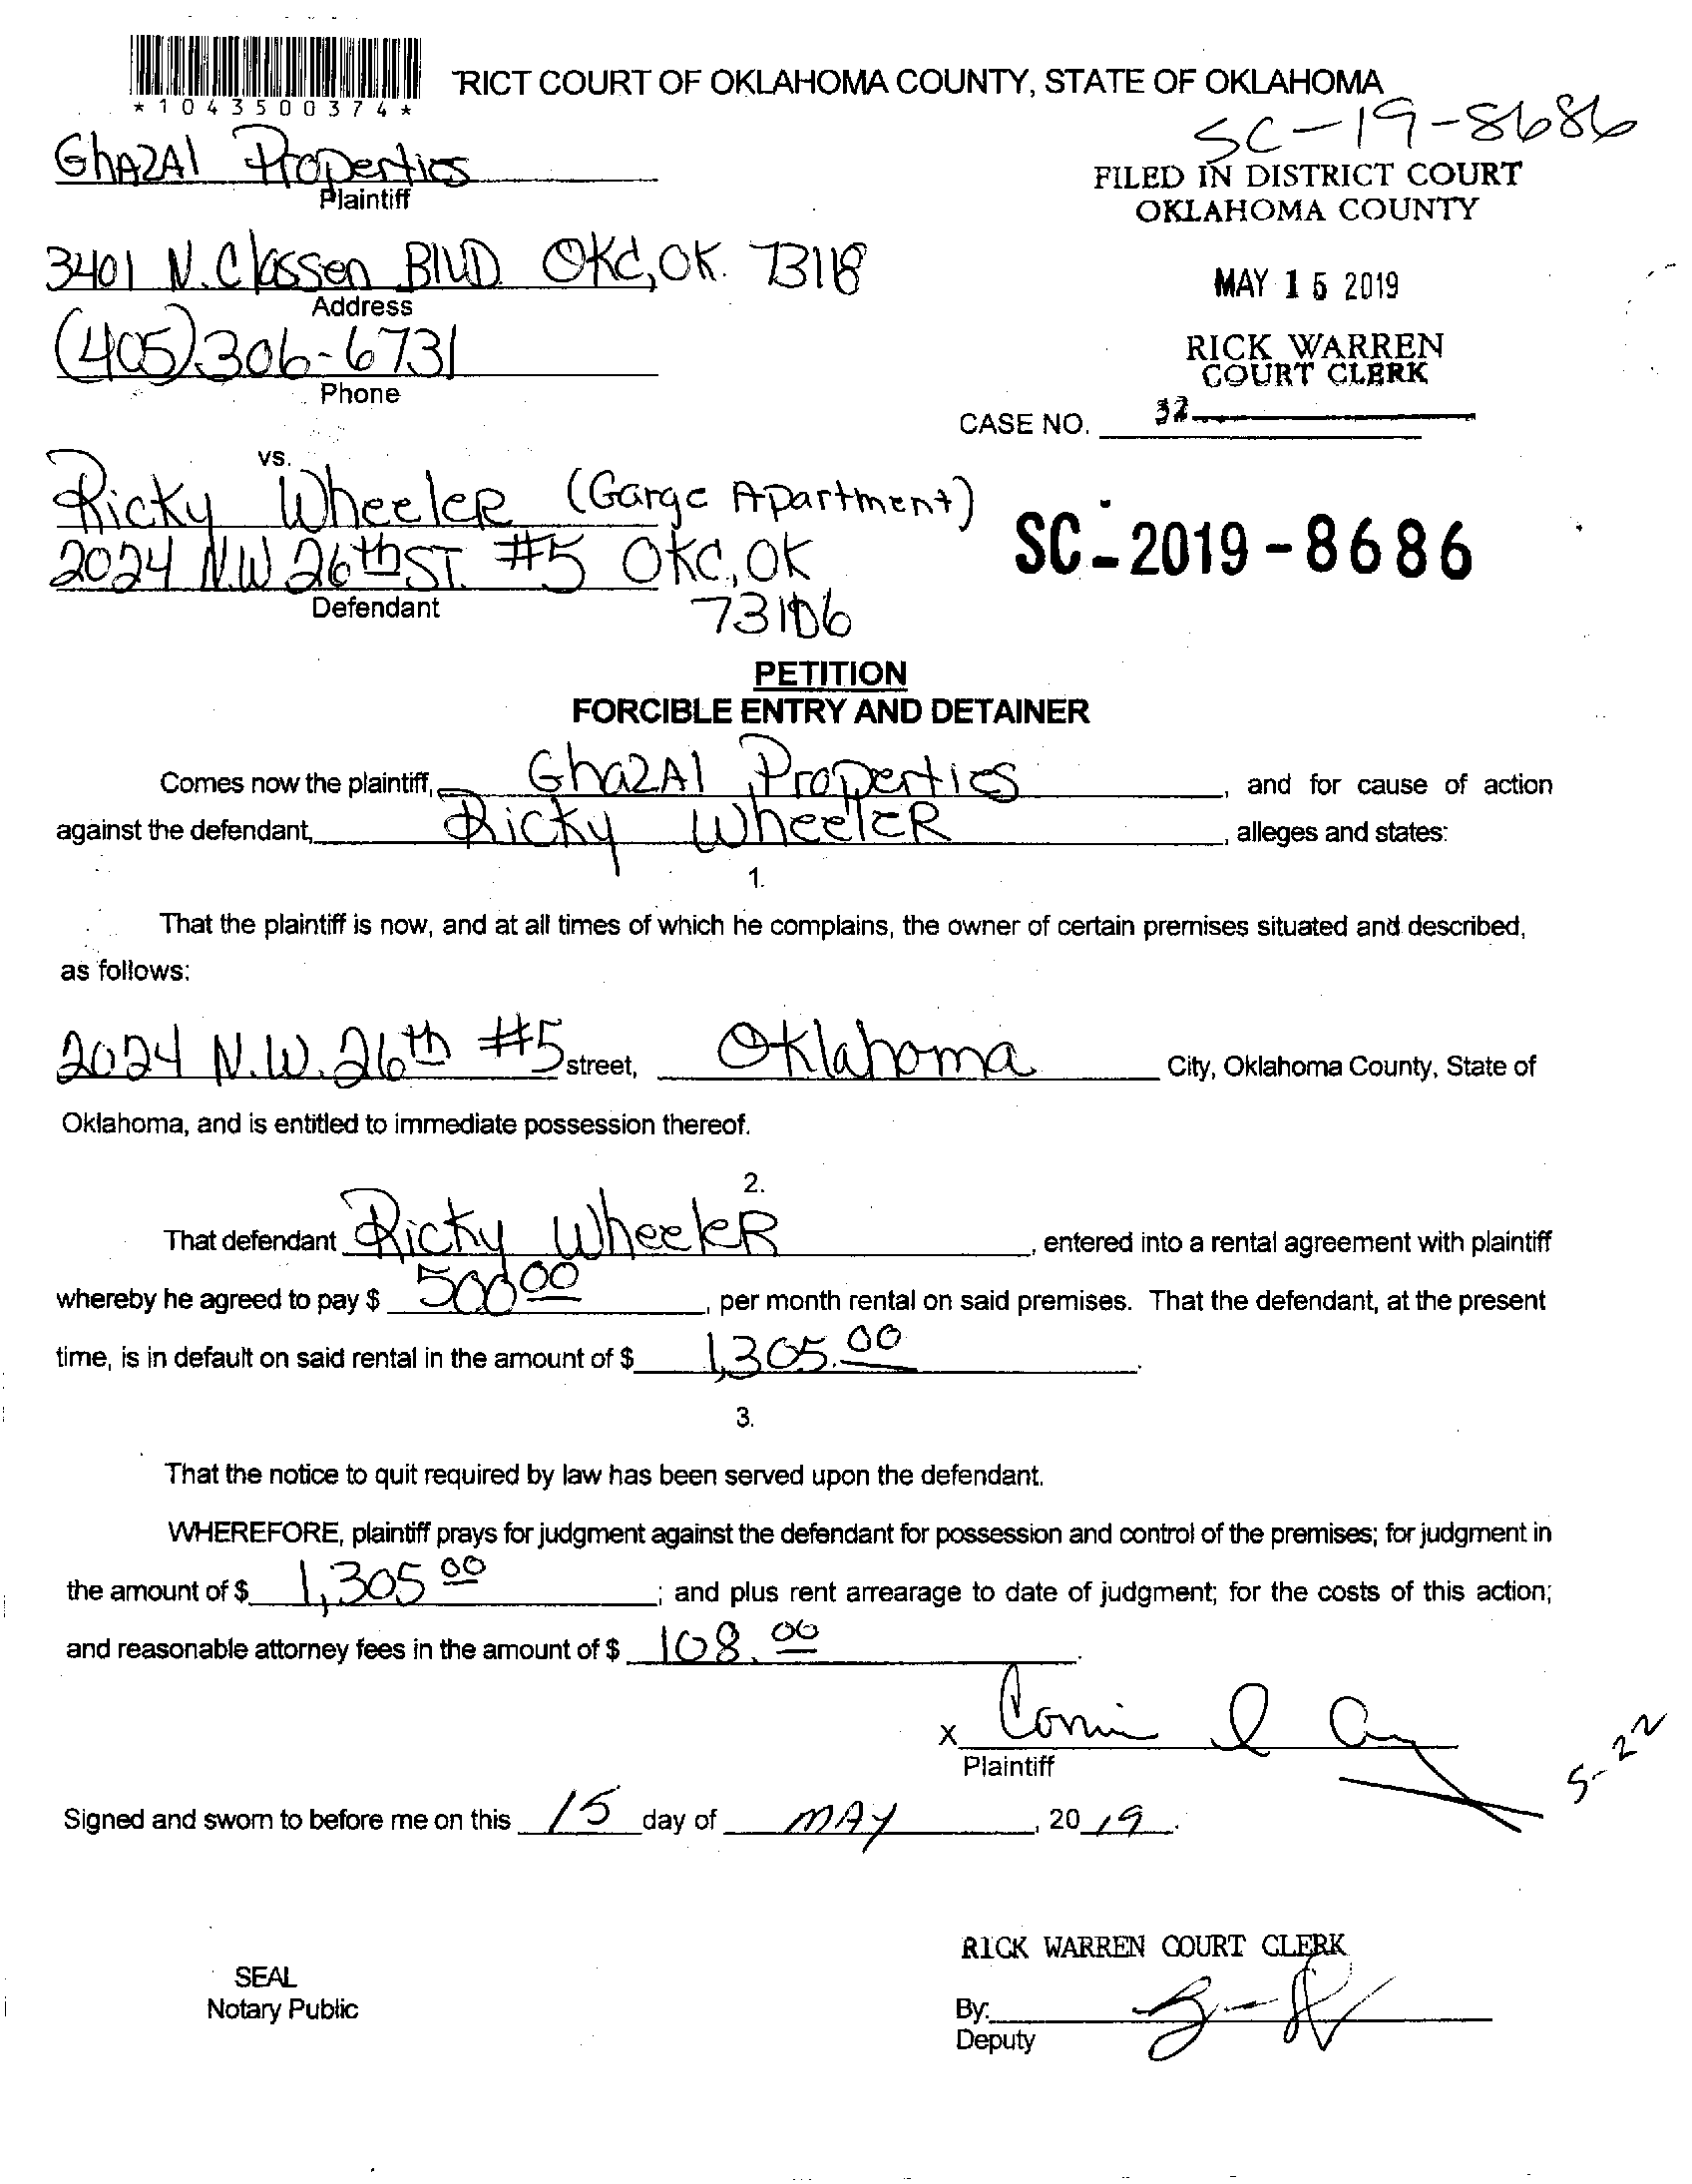 *1043500374*
RICT COURT OF OKLAHOMA COUNTY, STATE OF OKLAHOMA
SC-19-8686
GhAZAl Properties
Plaintiff
FILED IN DISTRICT COURT
OKLAHOMA COUNTY
3401 N. Classen BlVD. OKC, OK. 73118
Address
MAY 15 2019
(405) 306-6731
Phone
RICK WARREN
COURT CLERK
CASE NO. 32
vs.
Ricky WheeleR (Garge Apartment)
2024 N.W 26th ST. #5 OKC, OK
Defendant
73106
SC-2019-8686
PETITION
FORCIBLE ENTRY AND DETAINER
Comes now the plaintiff, GhaZAl Properties, and for cause of action
against the defendant, Ricky WheeleR, alleges and states:
1.
That the plaintiff is now, and at all times of which he complains, the owner of certain premises situated and described,
as follows:
2024 N.W. 26th #5 street, Oklahoma City, Oklahoma County, State of
Oklahoma, and is entitled to immediate possession thereof.
2.
That defendant Ricky WheeleR, entered into a rental agreement with plaintiff
whereby he agreed to pay $ 500 00, per month rental on said premises. That the defendant, at the present
time, is in default on said rental in the amount of $ 1,305.00.
3.
That the notice to quit required by law has been served upon the defendant.
WHEREFORE, plaintiff prays for judgment against the defendant for possession and control of the premises; for judgment in
the amount of $ 1,305 00; and plus rent arrearage to date of judgment; for the costs of this action;
and reasonable attorney fees in the amount of $ 108.00.
x
Plaintiff
5-22
Signed and sworn to before me on this 15 day of MAY, 2019.
RICK WARREN COURT CLERK
SEAL
Notary Public
By:
Deputy